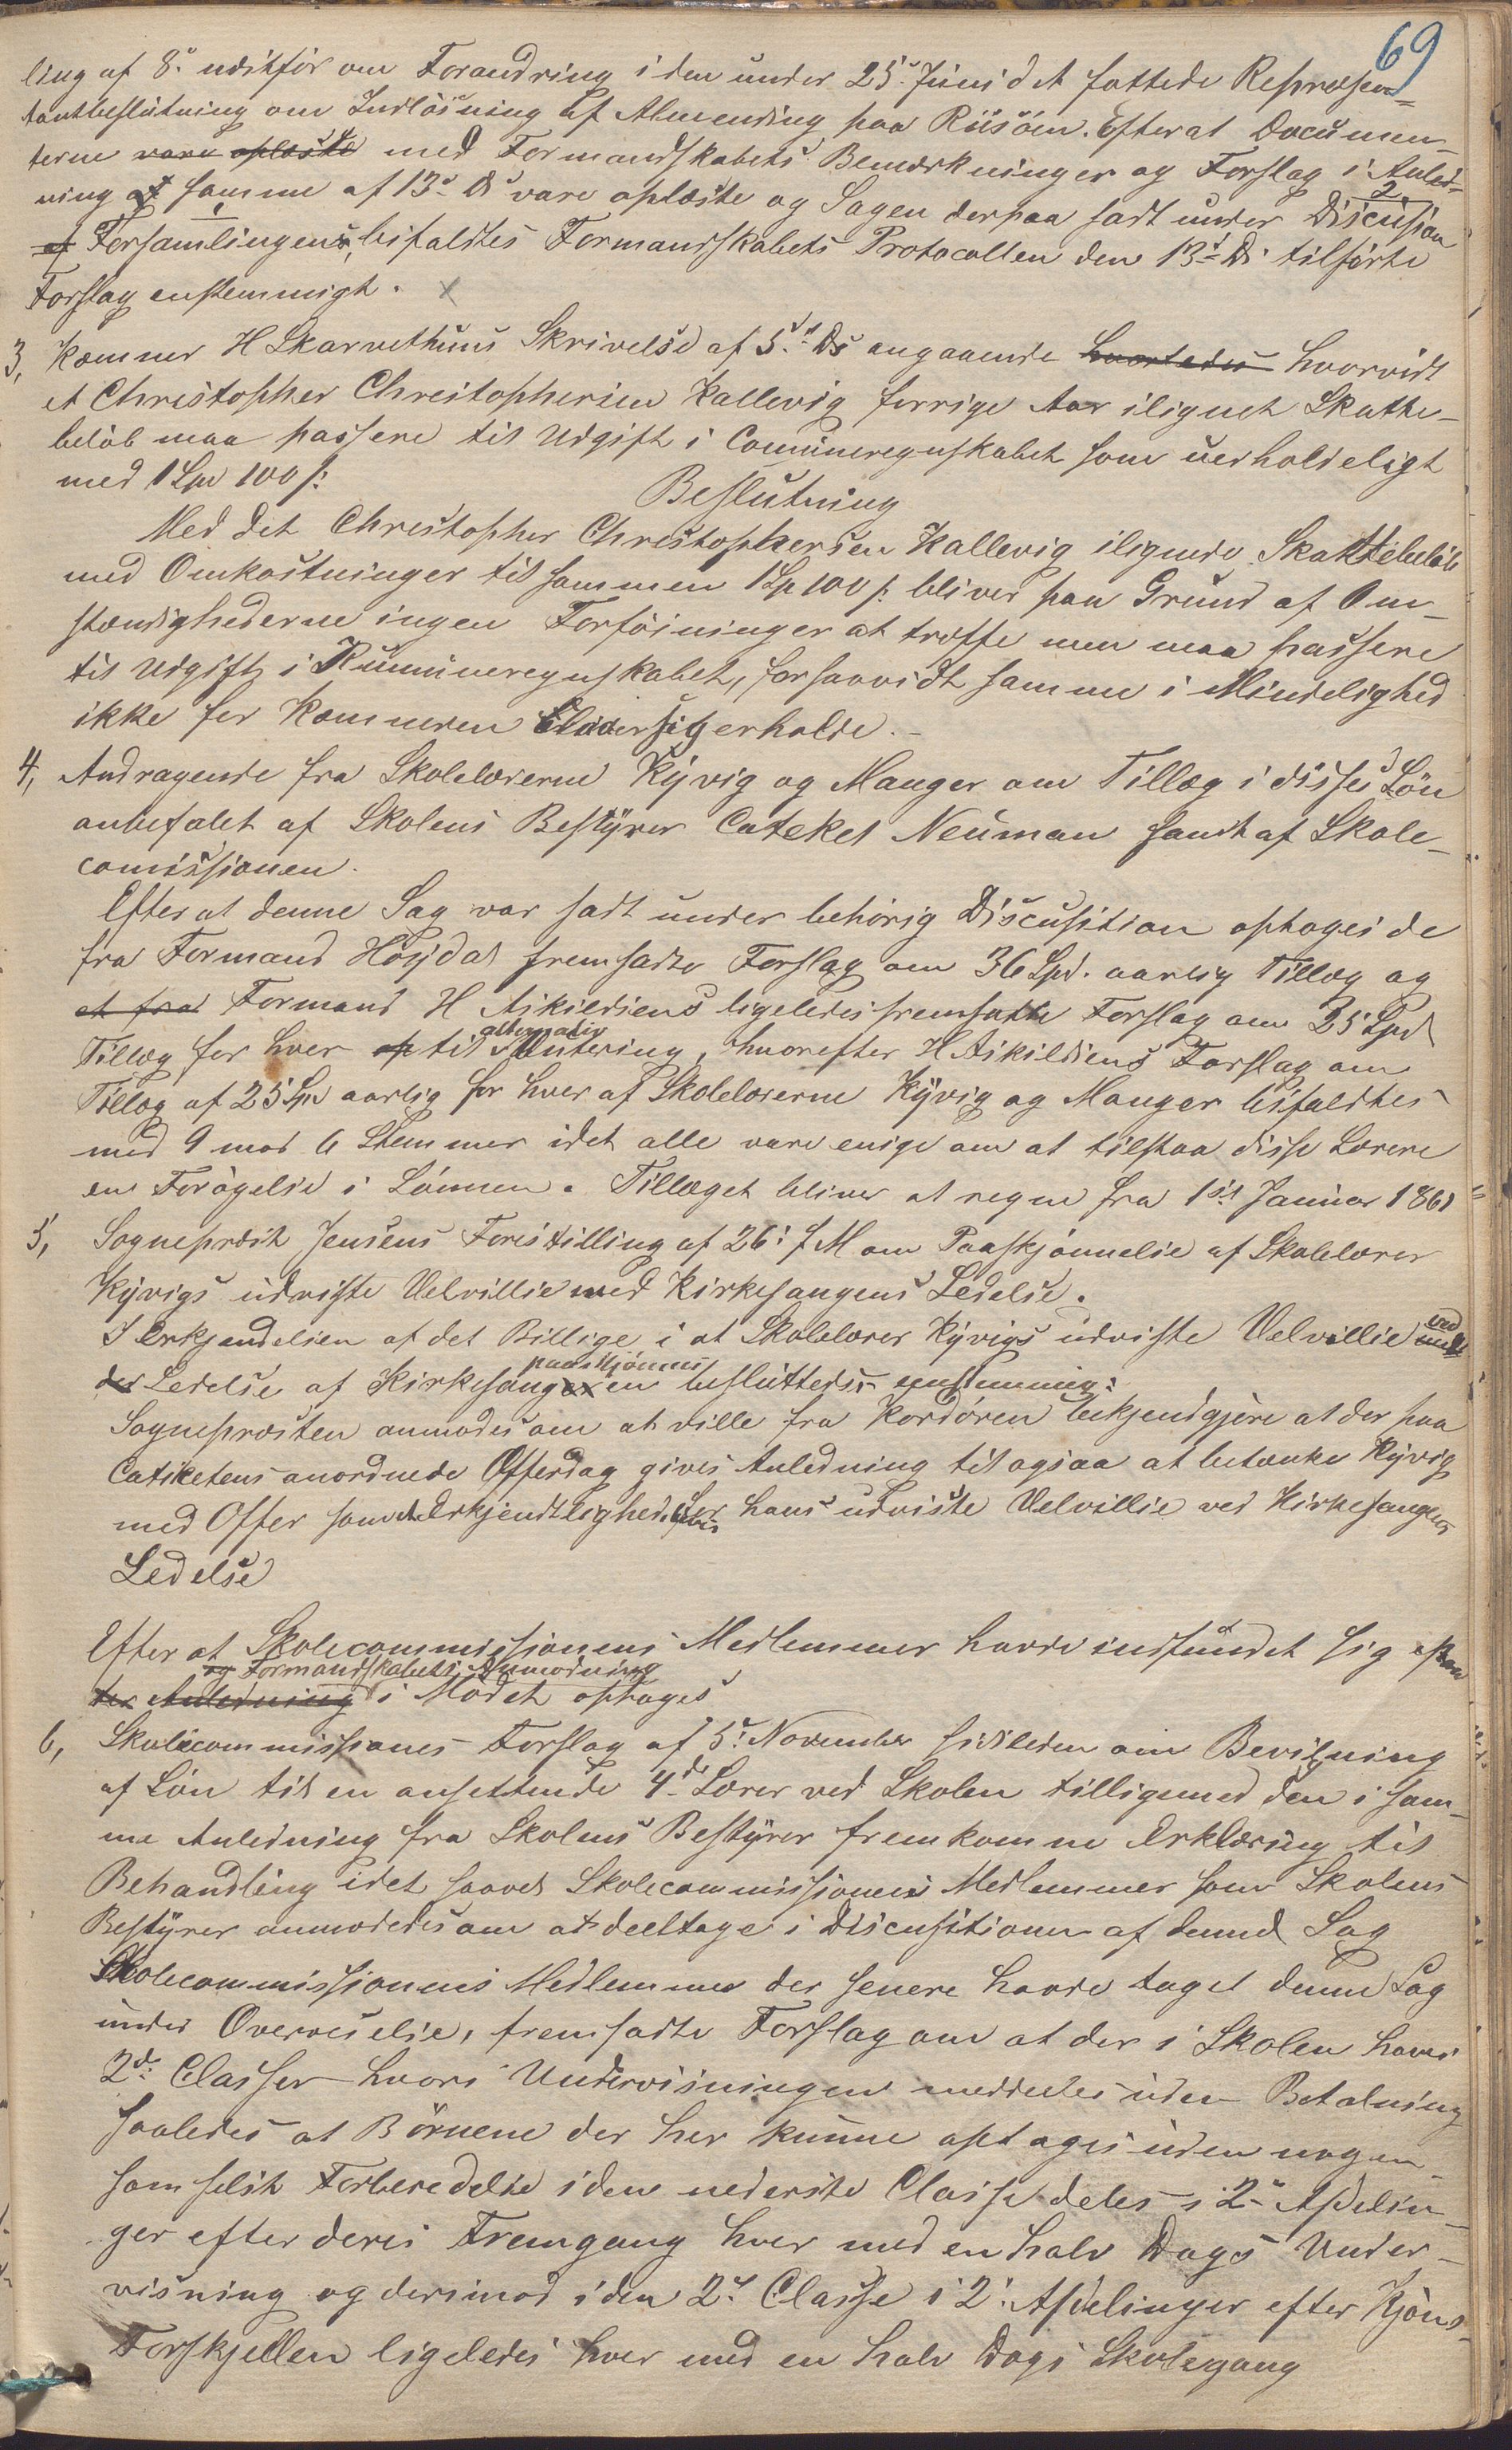 69
ling af 8. udskfør om Forandring i den under 25. Juni d A fattede Repræsen-
tantbeslutning om Indløsning af Almending paa Riisöen. Efterat Documen-
terne vare oplæste med Formandskabets Bemærkninger og Forslag i Anled-
ning af samme af 13. Ds vare oplæste og Sagen derpaa sadt under Discusion
af Forsamlingen, bifaldtes Formandskabets Protocollen den 13d Ds tilførte
Forslag enstemmigt.
3, Kæmner H Skarvethuns Skrivelse af 5d Ds angaaende hvorledes hvorvidt
et Christopher Christophersen Kallevig forrige Aar ilignet Skatte-
beløb maa passere til Udgift i Comüneregnskabet som uerholdeligt
med 1 Spd 100 s:
Beslutning
Med det Christopher Christophersen Kallevig ilignede Skattebeløb
med Omkostninger tilsammen 1 Sp 100 s: bliver paa Grund af Om-
stændighederne ingen Forføininger at træffe men maa passere
til Udgift i Kummüneregnskabet, forsaavidt samme i Mindelighed
ikke for Kæmneren lader sig erholde.-
4, Andragende fra Skolelærerne Kyvig og Manger om Tillæg i disses Løn
anbefalet af Skolens Bestyrer Cateket Neuman samt af Skole-
comissionen.
Efter at denne Sag var sadt under behørig Discusition optoges de
fra Formand Höydal fremsadte Forslag om 36 Spd. aarlig Tillæg og
et fra Formand H Askildsens ligeledes fremsatte Forslag om 25 Spd
Tillæg for hver op til alternativ Votering, hvorefter H Askildsens Forslag om
Tillæg af 25 Sp aarlig for hver af Skolelærerne Kyvig og Manger bifaldtes
med 9 mod 6 Stemmer idet alle vare enige om at tilstaa disse Lærere
en Forøgelse i Lønnen. Tillæget bliver at regne fra 1st Januar 1861
5, Sognepræst Jensens Forestilling af 26: f M om Paaskjønnelse af Skolelærer
Kyvigs udviste Velvillie med Kirkesangens Ledelse.
I Erkjendelsen af det Billige i at Skolelærer Kyvigs udviste Velvillie ved
der Ledelse af Kirkesangen paaskjønnes besluttedes enstemmig:
Sognepræsten anmodes om at ville fra Kordøren bekjendgjøre at der paa
Catiketens anordnede Offerdag gives Anledning til ogsaa at betænke Kyvig
med Offer som et Erkjendtlighed for hans udviste Velvillie ved Kirkesangens
Ledelse
Efter at Skolecommissionens Medlemmer havde indfundet sig efter
der Anledning og Formandskabets Anmodning i Mødet optoges
6, Skolecommissiones Forslag af 5. November sidsleden om Bevilgning
af Løn til en ansettende 4de Lærer ved Skolen tilligemed den i sam-
me Anledning fra Skolens Bestyrer fremkomne Erklæring til
Behandling idet saavel Skolecommissionens Medlemmer som Skolens
Bestyrer anmodedes om at deeltage i Discusitionen af denne Sag
Skolecommissionens Medlemmer der senere havde taget denne Sag
under Overveielse, fremsadte Forslag om at der i Skolen haves
2de Classer hvori Undervisningen meddeles uden Betalning
saaledes at Børnene der her kunne optages uden nogen-
somhelst Forberedelse i den nederste Classe deles i 2de Afdelin-
ger efter deres Fremgang hver med en halv Dags Under-
visning og derimod i den 2d Classe i 2: Afdelinger efter Kjøns-
Forskjellen ligeledes hver med en halv Dags Skolegang